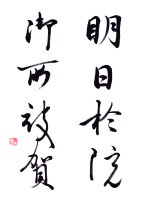 明日於院
御所被賀